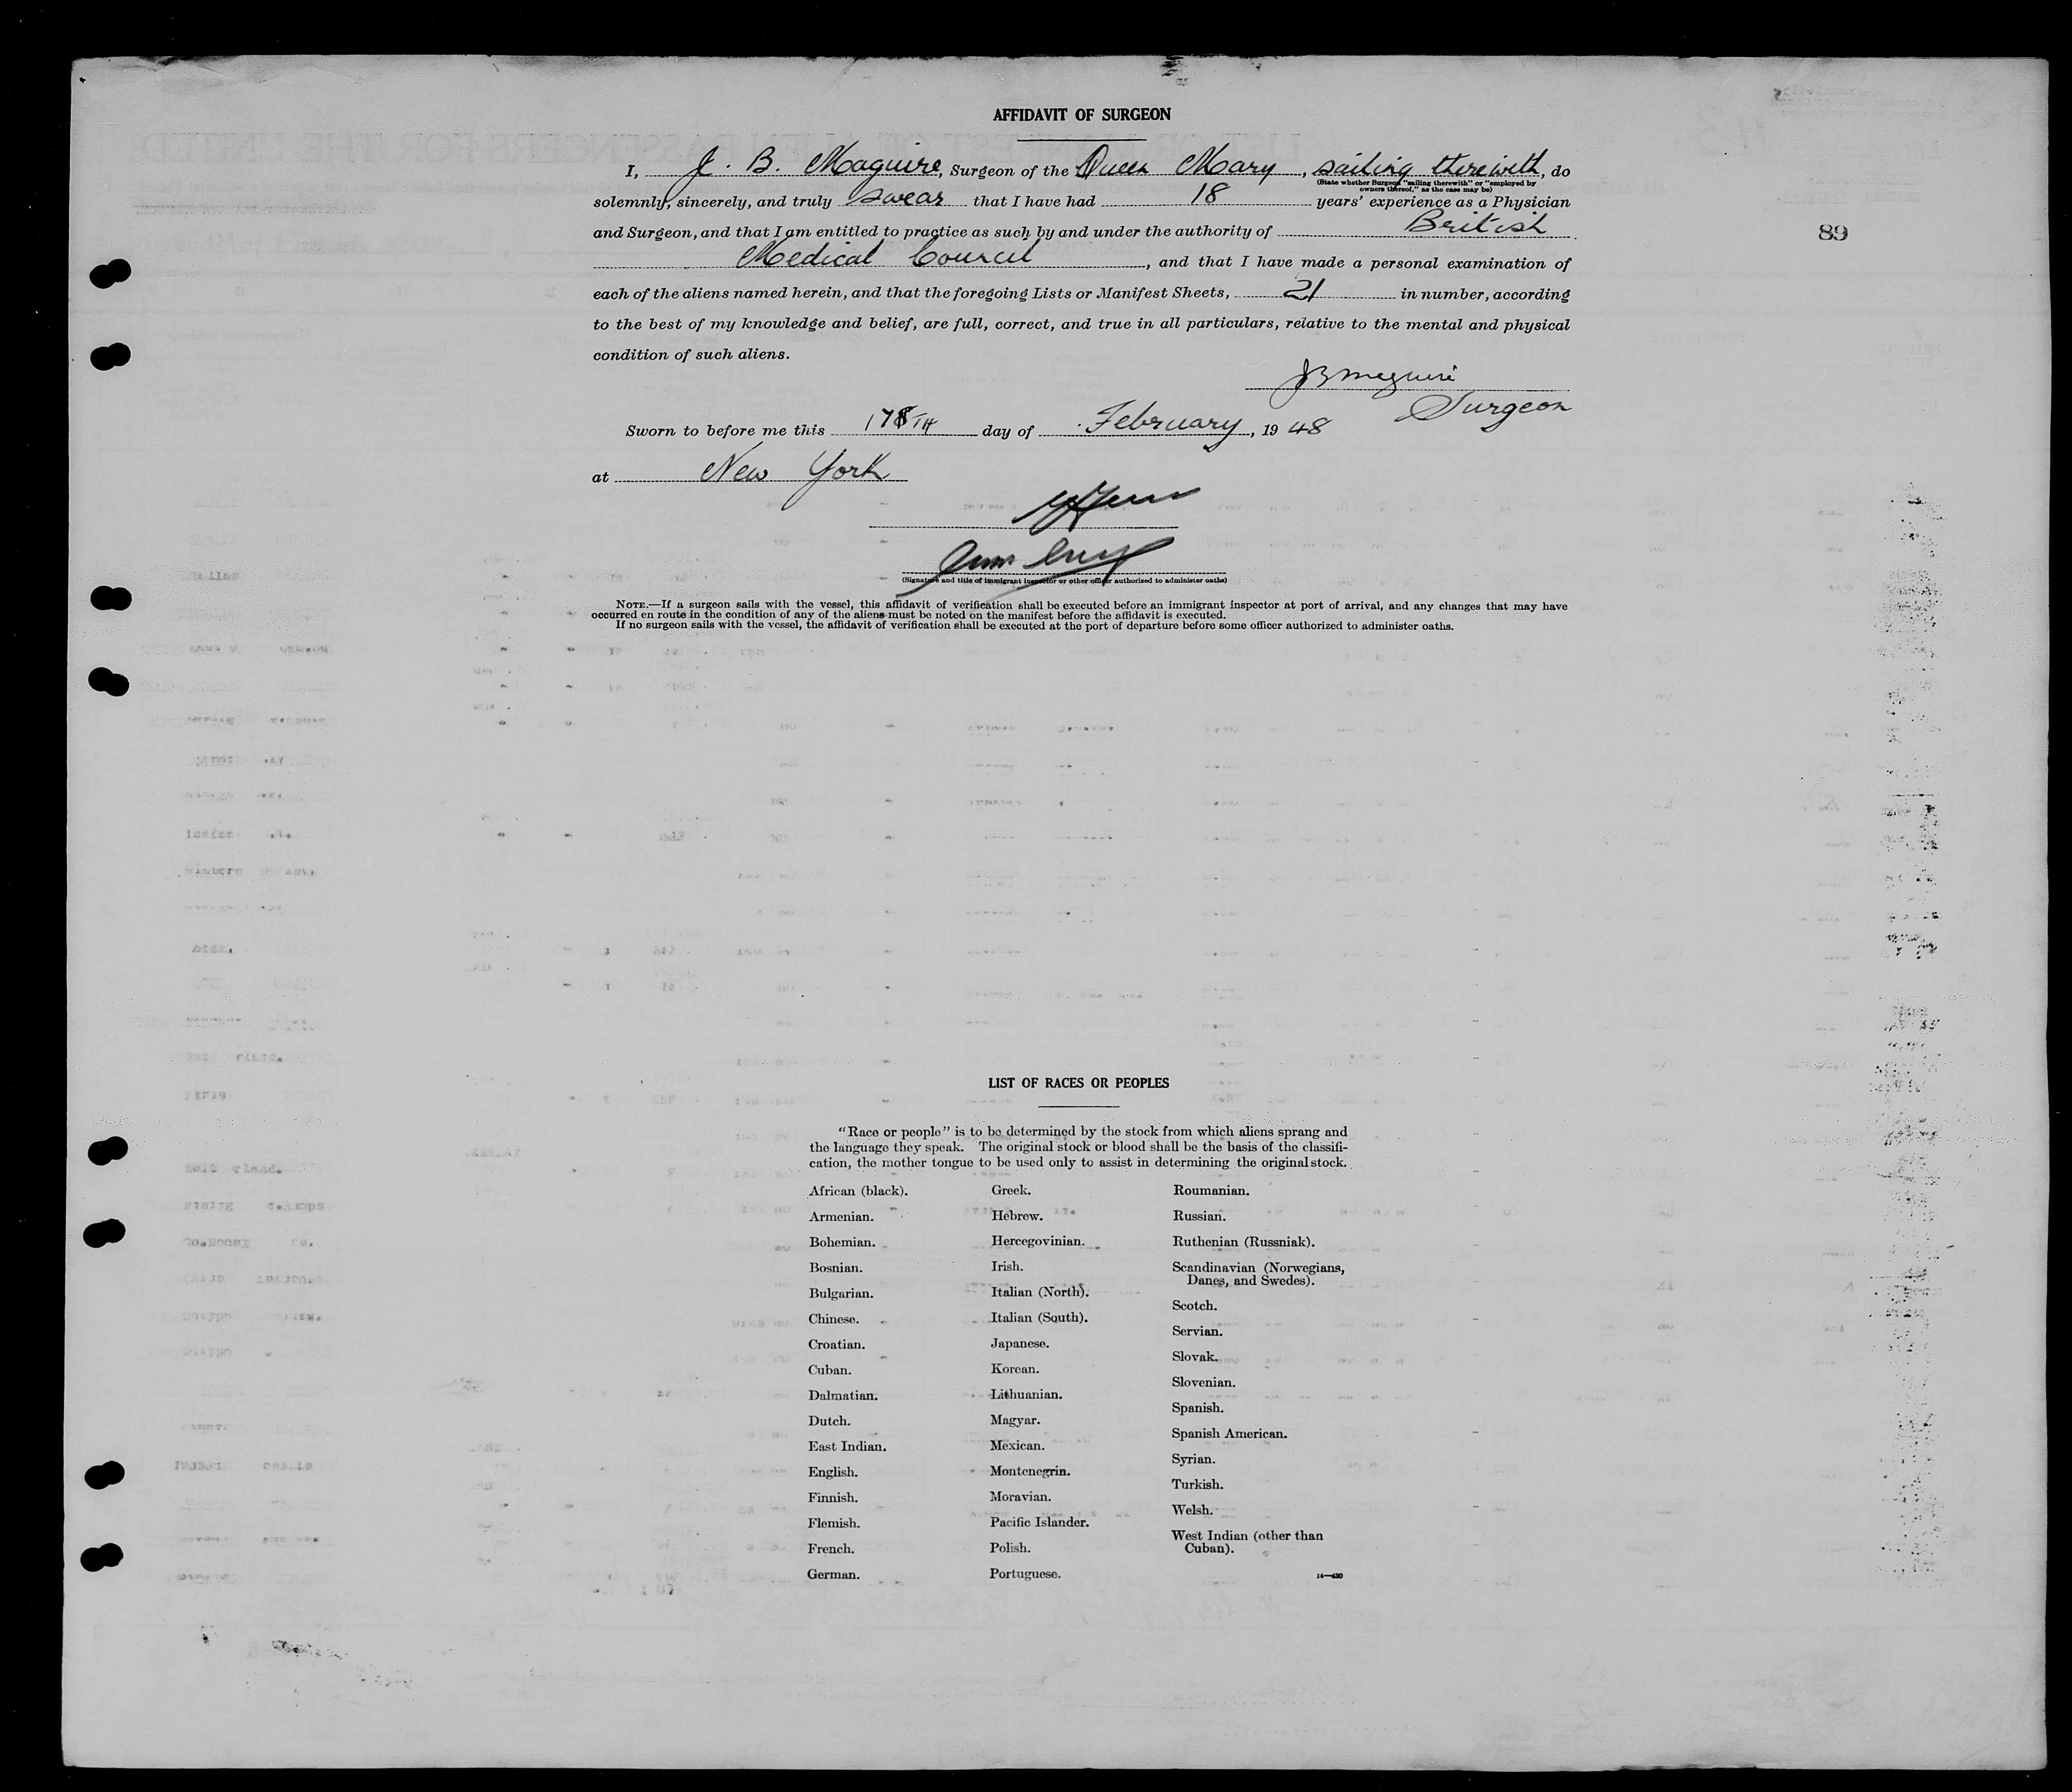 AFFIDAVIT OF SURGEON
I, J. B. Maguire, Surgeon of the Queen Mary, sailing therewith, do
(State whether Surgeon "sailing therewith" or "employed by
owners thereof," as the case may be)
solemnly, sincerely, and truly swear that I have had 18 years' experience as a Physician
and Surgeon, and that I am entitled to practice as such by and under the authority of British
89
Medical Council, and that I have made a personal examination of
each of the aliens named herein, and that the foregoing Lists or Manifest Sheets, 21 in number, according
to the best of my knowledge and belief, are full, correct, and true in all particulars, relative to the mental and physical
condition of such aliens.
JBMaguire
Surgeon
Sworn to before me this day of February, 19 48
at New York
(Signature and title of immigrant inspector or other officer authorized to administer oaths)
NOTE.—If a surgeon sails with the vessel, this affidavit of verification shall be executed before an immigrant inspector at port of arrival, and any changes that may have
occurred en route in the condition of any of the aliens must be noted on the manifest before the affidavit is executed.
If no surgeon sails with the vessel, the affidavit of verification shall be executed at the port of departure before some officer authorized to administer oaths.
LIST OF RACES OR PEOPLES
"Race or people" is to be determined by the stock from which aliens sprang and
the language they speak. The original stock or blood shall be the basis of the classifi-
cation, the mother tongue to be used only to assist in determining the original stock.
African (black).
Armenian.
Bohemian.
Bosnian.
Bulgarian.
Chinese.
Croatian.
Cuban.
Dalmatian.
Dutch.
East Indian.
English.
Finnish.
Flemish.
French.
German.
Greek.
Hebrew.
Hercegovinian.
Irish.
Italian (North).
Italian (South).
Japanese.
Korean.
Lithuanian.
Magyar.
Mexican.
Montenegrin.
Moravian.
Pacific Islander.
Polish.
Portuguese.
Roumanian.
Russian.
Ruthenian (Russniak).
Scandinavian (Norwegians,
Danes, and Swedes).
Scotch.
Servian.
Slovak.
Slovenian.
Spanish.
Spanish American.
Syrian.
Turkish.
Welsh.
West Indian (other than
Cuban).
14—430